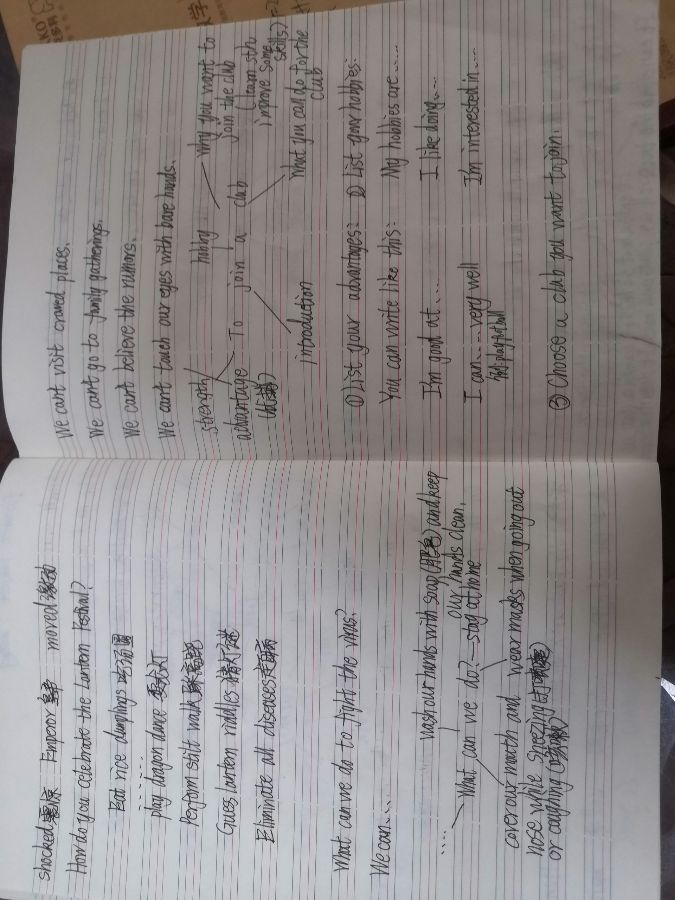 shocked 震惊 Emperor 皇帝 moved 感动
How do you celebrate the Lantern Festival?
Eat rice dumplings 吃汤圆
......
play dragon dance 耍龙灯
Perform stilt walk 踩高跷
Guess lantern riddles 猜灯谜
Eliminate all diseases 走百病
What can we do to fight the virus?
We can.....
wash our hands with soap(肥皂) and keep
our hands clean.
.... What can we do? stay at home
cover our mouth and wear masks when going out
nose while sneezing(打喷嚏)
or coughing (咳嗽)
We can't visit crowed places.
We can't go to family gatherings.
We can't believe the rumors.
We can't touch our eyes with bare hands.
strength hobby why you want to
join the club
(learn sth
improve some
skills)
advantage To join a club
(优势) what you can do for the
club
introduction
①List your advantages: ② List your hobbies:
You can write like this: My hobbies are .....
I'm good at ..... I like doing.....
I can.....very well I'm interested in.....
③ Choose a club you want to join.